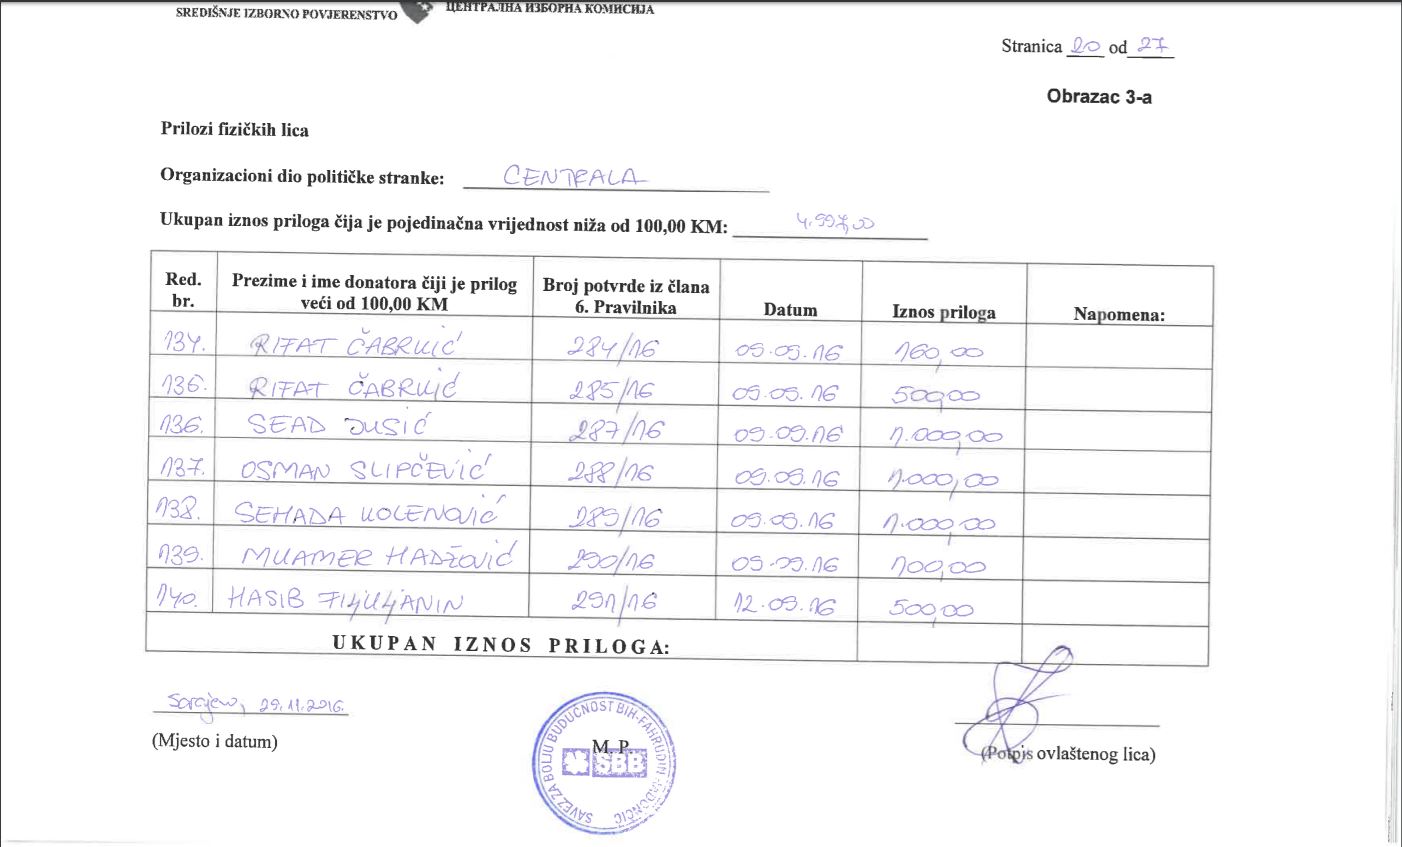 SREDIŠNJE IZBORNO POVJERENSTVO
ЦЕНТРАЛНА ИЗБОРНА КОМИСИЈА
Stranica 20 od 27
Obrazac 3-a
Prilozi fizičkih lica
Organizacioni dio političke stranke: CENTRALA
Ukupan iznos priloga čija je pojedinačna vrijednost niža od 100,00 KM: 4.997,00
Red. br. Prezime i ime donatora čiji je prilog veći od 100,00 KM Broj potvrde iz člana 6. Pravilnika Datum Iznos priloga Napomena:
134. RIFAT ČABRIĆ 284/16 09.09.16 160,00
136. RIFAT 285/16 09.09.16 500,00
136. SEAD DUSIĆ 287/16 09.09.16 1.000,00
137. OSMAN SLIPČEVIĆ 288/16 09.09.16 1.000,00
138. SEHADA KOLENOVIĆ 289/16 09.09.16 1.000,00
139. MUAMER HADŽOVIĆ 290/16 09.09.16 100,00
140. HASIB FILJULJANIN 291/16 12.09.16 500,00
UKUPAN IZNOS PRILOGA:
Sarajevo, 29.11.2016.
(Mjesto i datum)
M. P.
(Potpis ovlaštenog lica)
SAVEZ ZA BOLJU BUDUĆNOST BIH-FAHRUDIN RADONČIĆ
SBB